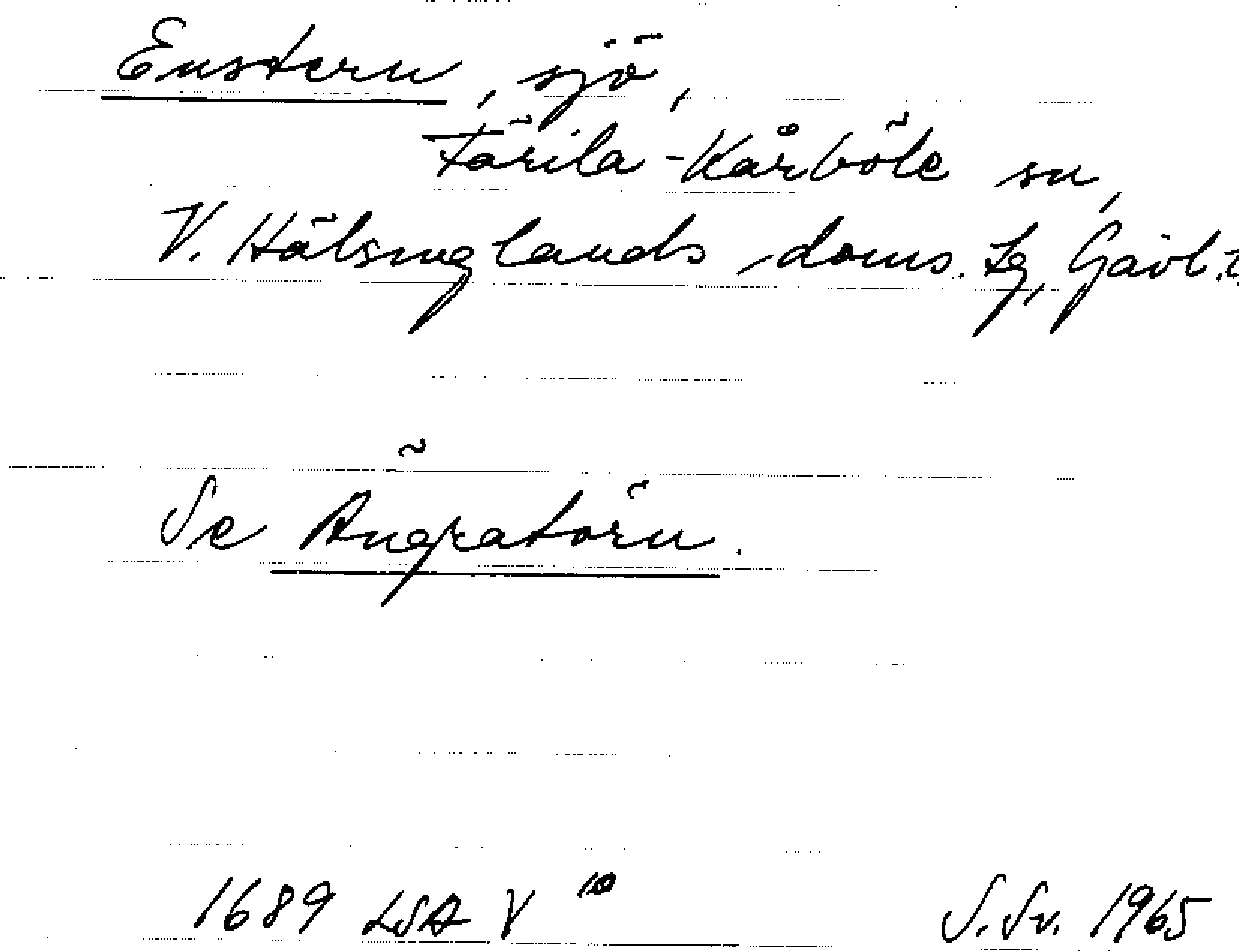 Enstern, sjö,
Färila-Kårböle sn,
V. Hälsinglands doms. tg, Gävl. l.
Se Ängratörn.
1689 LSA V 10
S. Sv. 1965